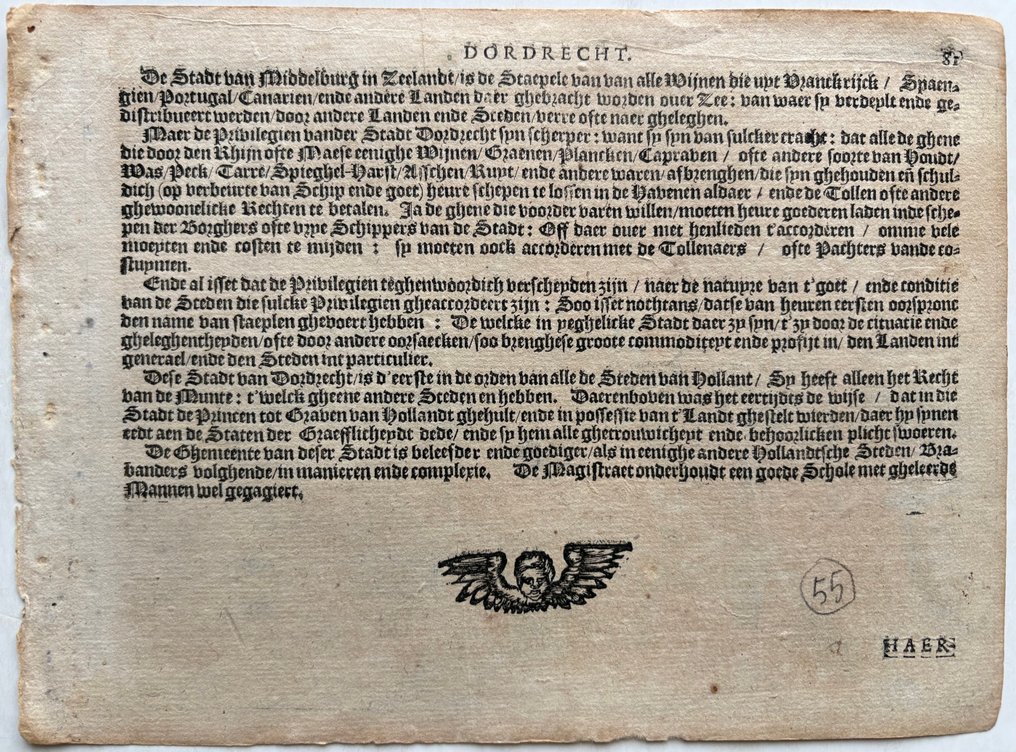 DORDRECHT. 81
De Stadt van Middelburg in Zeelandt/is de Staepele van van alle Wijnen die uyt Vranckrijck / Spaen-
gien/Portugal/Canarien/ende andere Landen daer ghebracht worden over Zee: van waer sy verdeylt ende ge-
distribueert werden/door andere Landen ende Steden/verre ofte naer gheleghen.
Maer de Privilegien vander Stadt Dordrecht syn scherper: want sy syn van sulcker cracht: dat alle de ghene
die door den Rhijn ofte Maese eenighe Wijnen/Graenen/Plancken/Capraven / ofte andere soorte van Houdt/
Was/Peck/Tarre/Spieghel-Harst/Asschen/Ruyt/ende andere waren/afbrenghen/die syn ghehouden eñ schul-
dich (op verbeurte van Schip ende goet) heure schepen te lossen in de Havenen aldaer / ende de Tollen ofte andere
ghewoonelicke Rechten te betalen. Ja de ghene die voorder varen willen/moeten heure goederen laden inde sche-
pen der Borghers ofte vrye Schippers van de Stadt: Off daer over met henlieden t'accorderen / omme vele
moeyten ende costen te mijden : sy moeten oock accorderen met de Tollenaers / ofte Pachters vande co-
stuymen.
Ende al isset dat de Privilegien teghenwoordich verscheyden zijn / naer de natuyre van t'goet / ende conditie
van de Steden die sulcke Privilegien gheaccordeert zijn : Soo isset nochtans/datse van heuren eersten oorspronc
den name van staeplen ghevoert hebben : De welcke in yeghelicke Stadt daer zy syn/t'zy door de cituatie ende
gheleghentheyden/ofte door andere oorsaecken/soo brenghese groote commoditeyt ende profijt in/ den Landen int
generael/ende den Steden int particulier.
Dese Stadt van Dordrecht/is d'eerste in de orden van alle de Steden van Hollant/ Sy heeft alleen het Recht
van de Munte: t'welck gheene andere Steden en hebben. Daerenboven was het eertijdts de wijse / dat in die
Stadt de Princen tot Graven van Hollandt ghehult/ende in possessie van t'Landt ghestelt wierden/daer hy synen
eedt aen de Staten der Graefflicheydt dede/ ende sy hem alle ghetrouwicheyt ende behoorlicken plicht swoeren.
De Ghemeente van deser Stadt is beleefder ende goediger/als in eenighe andere Hollandtsche Steden/ Bra-
banders volghende/in manieren ende complexie. De Magistraet onderhoudt een goede Schole met gheleerde
Mannen wel gegagiert.
55
HAER-